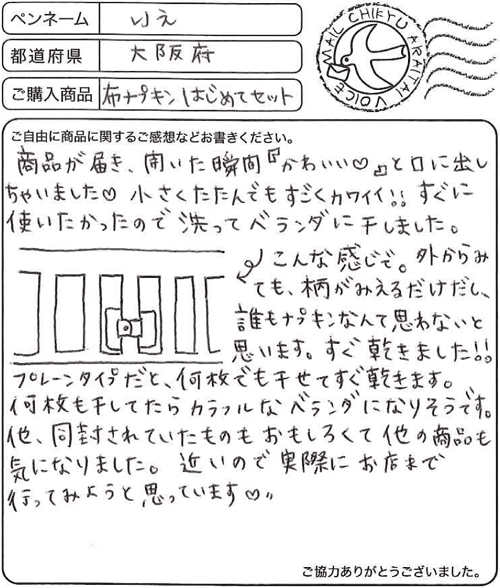 ペンネーム りえ
都道府県 大阪府
ご購入商品 布ナプキンはじめてセット
MAIL CHIKYU ARAITAI VOICE
ご自由に商品に関するご感想などお書きください。
商品が届き、開いた瞬間『かわいい♡』と口に出し
ちゃいました♡ 小さくたたんでもすごくカワイイ!! すぐに
使いたかったので洗ってベランダに干しました。
こんな感じで。外からみ
ても、柄がみえるだけだし、
誰もナプキンなんて思わないと
思います。すぐ乾きました!!
プレーンタイプだと、何枚でも干せてすぐ乾きます。
何枚も干してたらカラフルなベランダになりそうです。
他、同封されていたものもおもしろくて他の商品も
気になりました。近いので実際にお店まで
行ってみようと思っています♡〃
ご協力ありがとうございました。